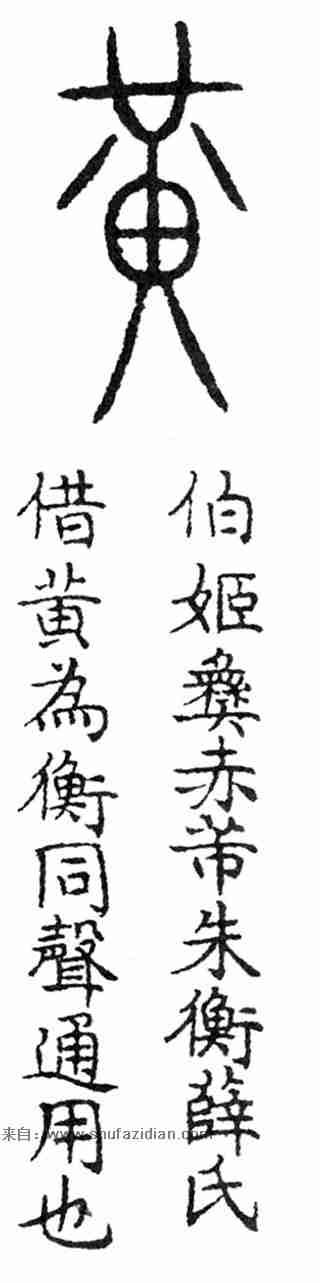 黃
伯姬彝赤芾朱衡薛氏
借黃為衡同聲通用也
来自：www.shufazidian.com